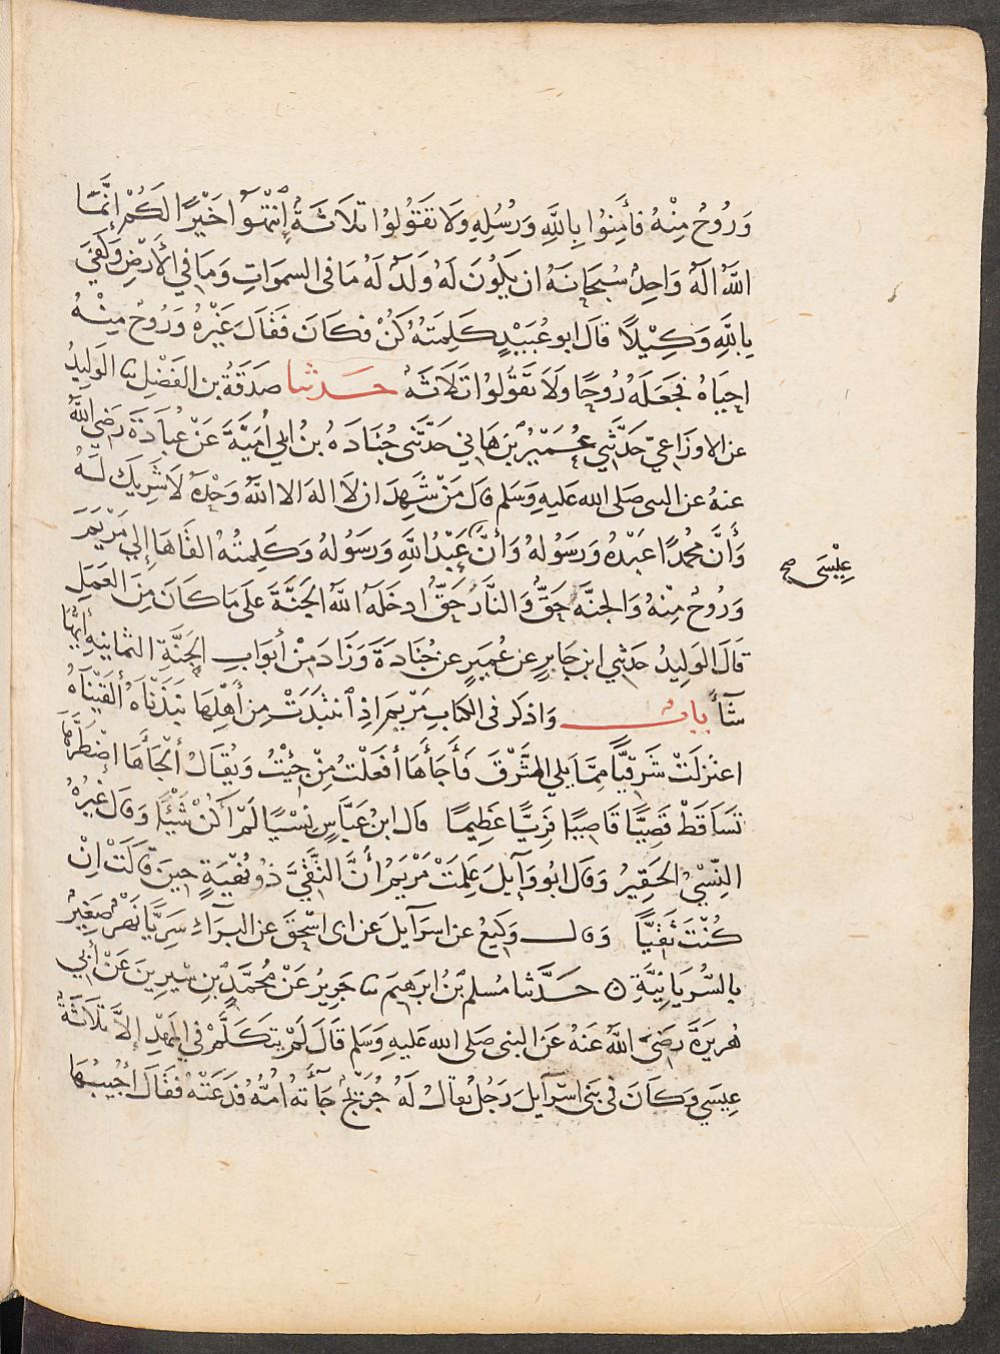 وَرُوحٌ مِنْهُ فَأَمِنُوا بِاللَّهِ وَرُسُلِهِ وَلَا تَقُولُوا ثَلَاثَةُ إِنْتَهُوا خَيْرًا لَكُمْ إِنَّمَا
اللَّهُ الَهٌ وَاحِدٌ سُبْحَانَهُ ان يَكُونَ لَهُ وَلَدٌ لَهُ مَا فى السموَاتِ وَمَا فِي الْأَرْضِ وَكَفَى
بِاللَّهِ وَكِيْلًا قَالَ ابو عُبَيْدٍ كَلِمَتُهُ كُنْ فكَانَ فَقَالَ غَيْرُهُ وَرُوحٌ مِنْهُ
احيَاهُ فجَعَلَهُ رُوحًا وَلَا تَقُولُوا ثَلَاثَهٌ حَدثنا صَدَقَةُ بن الفَضْلِ نا الوَلِيدُ
عن الاوزَاعيّ حَدَّثَنِي عُمَيْرُ بْنُ هَانِي حَدَّثَنى جُنَادَهُ بنُ ابي اُمَيَّةَ عَنْ عبَادَةَ رَضِي اللَّهُ
عنهُ عن النبى صَلى الله عَليهِ وَسَلم قال مَنْ شَهِدَ ان لَا اله الا اللَّهُ وَحْدَهُ لَا شَرِيكَ لَهُ
وَأَنَّ محمدًا عَبْدُهُ وَرَسُولهُ وَأَنَّ عَبْدُ اللَّهِ وَرَسُولهُ وَكَلِمتُهُ القَاهَا إِلي مَرْيَمَ
عِيْسَى صح
وَرُوحٌ مِنْهُ وَالجنَّه حَقٌّ وَالنَّارُ حَقٌّ ادخَلَهُ اللَّهُ الجَنَّةَ عَلى مَا كَانَ مِنَ العَمَلِ
قَالَ الوَلِيدُ حَدثني ابن جَابرٍ عن عُمَيرٍ عن جُنَادةَ وَزَادَ مِنْ أَبْوَابِ الجَنَّةِ الثمانيةِ أَيِّهَا
شَآءَ بابٌ وَاذكر فى الكتابِ مَرْيم اذِ انتَبَذَتْ مِن أَهْلِهَا نَبَذْنَاهُ أَلْقَيْنَاهُ
اعتزلَتْ شَرْقيًّا مِمَّا يَلي المشَّرْقَ فَأَجَأَهَا أَفعَلْتُ مِنْ جِئْتُ وَيُقَالُ أَلْجَأَهَا اضْطَرَّهَا
تَسَاقَطْ قَصِيًّا قَاصِيًا فَرِيًّا عَظِيمًا قال ابنُ عَبَّاسٍ نَسْيًا لَمْ أَكُنْ شَيْئًا وَقال غَيْرُهُ
النِّسْيُ الحَقِيرُ وَقال ابو وَآيلَ عَلِمَتْ مَرْيَمُ أَنَّ التَّقيَّ ذُو نُهْيَةٍ حِينَ قَالَتْ اِنْ
كُنْتَ تَقيًّا وَقال وَكيعٌ عن اسرَآيلَ عَن ابى اسْحقَ عن البَرآءِ سَرِيًّا نَهْرٌ صَغِيرٌ
بالسُّريَانِيَّةِ ۞ حَدَّثنا مُسلم بْنُ ابرَهيمَ نا جَرِيرُ عَنْ مُحمَّدِ بْنِ سِيرِينَ عَنْ أَبي
هُريَرَةَ رَضيَ اللَّهُ عَنهُ عَن النبى صَلى الله عَليهِ وَسَلم قَالَ لَمْ يَتكَلَّمْ فِي المَهْدِ إِلَّا ثلَاثَةٌ
عِيسَي وَكَانَ فى بَنى اسْرَآيلَ رَجُلٌ يُقالُ لَهُ جُرَيْجٌ جَآءَتهُ امُّهُ فَدَعَتْهُ فقَالَ اُجِيبُهَا